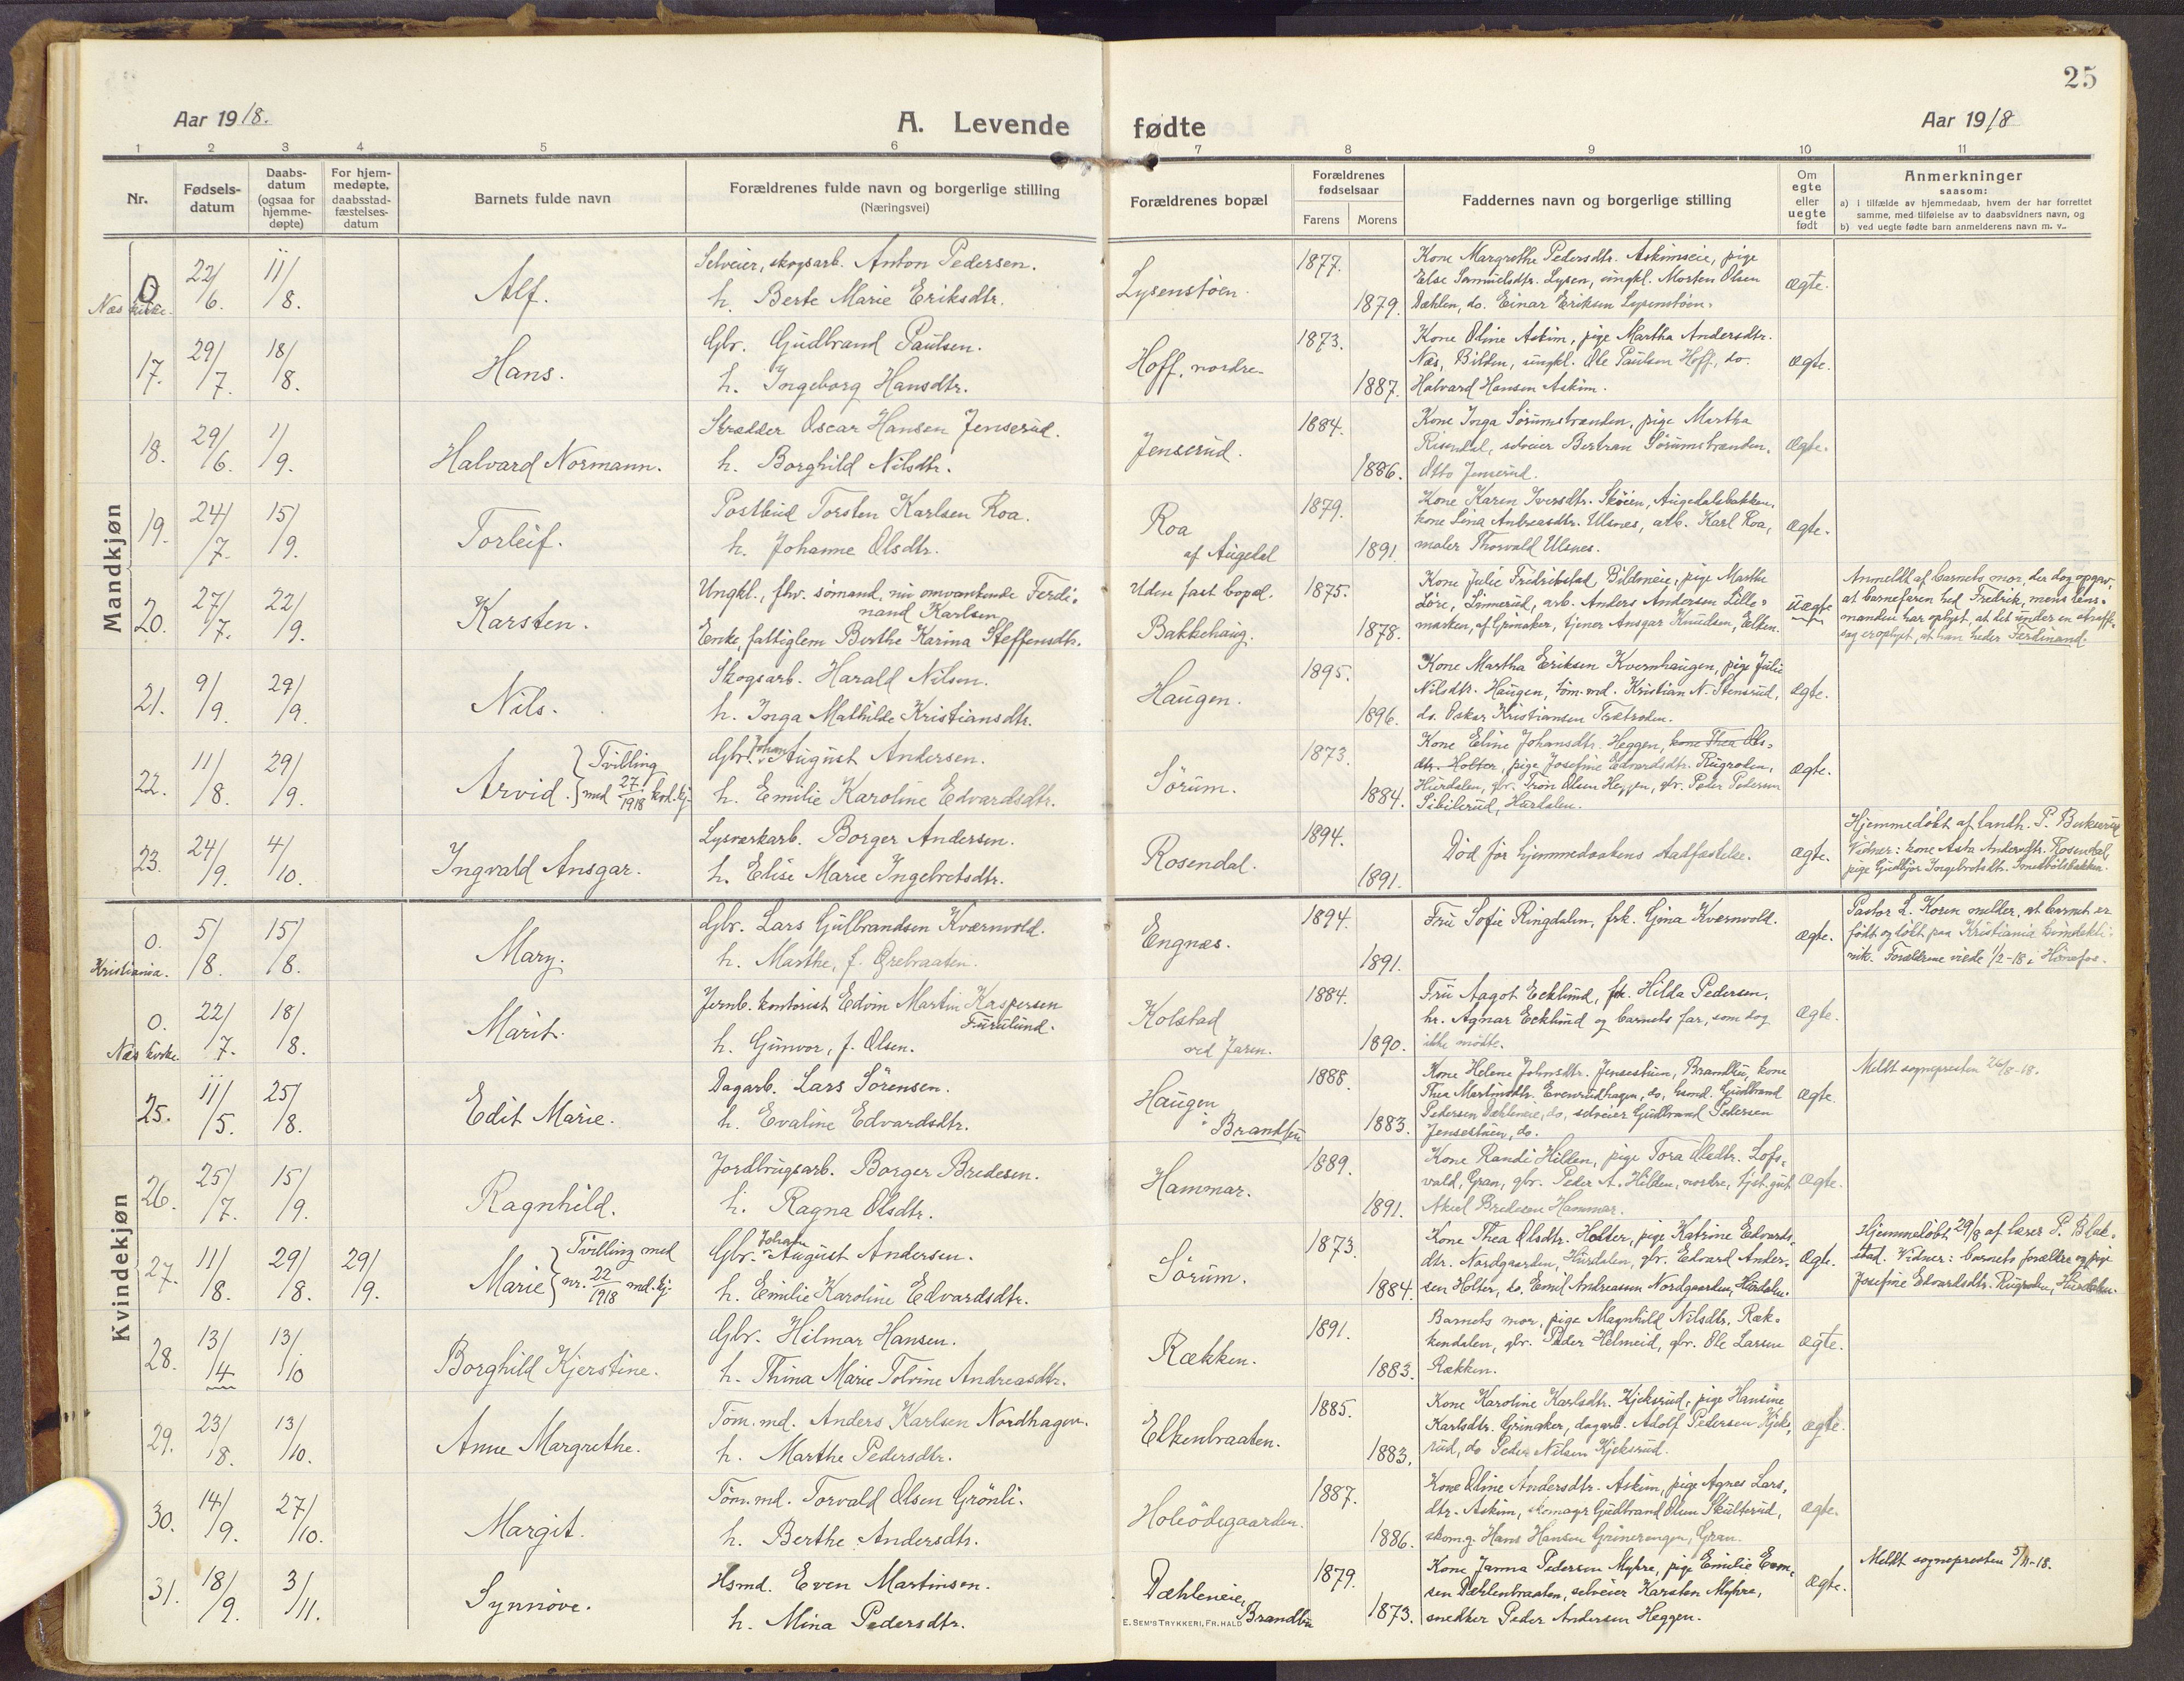 25
Aar 1918.
A. Levende fødte
Aar 1918
1 2 3 4 5 6 7 8 9 10 11
Nr.
Fødsels-
datum
Daabs-
datum
(ogsaa for
hjemme-
døpte)
For hjem-
medøpte,
daabsstad-
fæstelses-
datum
Barnets fulde navn
Forældrenes fulde navn og borgerlige stilling
(Næringsvei)
Forældrenes bopæl
Forældrenes
fødselsaar
Farens Morens
Faddernes navn og borgerlige stilling
Om
egte
eller
uegte
født
Anmerkninger
saasom:
a) i tilfælde av hjemmedaab, hvem der har forrettet
samme, med tilføielse av to daabsvidners navn, og
b) ved uegte fødte barn anmelderens navn m. v..
Mandkjøn
0 Næs kirke. 22/6. 11/8. Alf.
Selveier, skogsarb. Anton Pedersen.
h. Berte Marie Eriksdtr.
Lysenstøen. 1877. 1879.
Kone Margrethe Pedersdtr. Askimseie, pige
Else Samuelsdtr. Lysen, ungkl. Morten Olsen
Dæhlen, do. Einar Eriksen Lysenstøen.
Ægte.
17. 29/7. 18/8. Hans.
Gbr. Gudbrand Paulsen.
h. Ingeborg Hansdtr.
Hoff, nordre. 1873. 1887.
Kone Oline Askim, pige Martha Andersdtr.
Næs, Bilden, ungkl. Ole Paulsen Hoff, do.
Halvard Hansen Askim.
Ægte.
18. 29/6. 1/9. Halvard Normann.
Skrædder Oscar Hansen Jenserud.
h. Borghild Nilsdtr.
Jenserud. 1884. 1886.
Kone Inga Sørumstranden, pige Martha
Risendal, selveier Bertran Sørumstranden,
Otto Jenserud.
Ægte.
19. 24/7. 15/9. Torleif.
Postbud Torsten Karlsen Roa.
h. Johanne Olsdtr.
Roa
af Augedal 1879. 1891
Kone Karen Iversdtr. Skøien, Augedalsbakken,
kone Lina Andreasdtr. Ulsnes, arb. Karl Roa,
maler Thorvald Ulsnes.
Ægte.
20. 27/7. 22/9. Karsten.
Ungkl., fhv. sømand, nu omvankende Ferdi-
nand Karlsen
Enke, fattiglem Berthe Karina Steffensdtr.
Uden fast bopæl.
Bakkehaug. 1875. 1878.
Kone Julie Fredrikstad, Bildeneie, pige Marthe
Løre, Linnerud, arb. Anders Andersen Lille-
marken, af Grinaker, tjener Ansgar Knudsen,
uægte
Anmeldt af barnets mor, der dog opgav,
at barnefaren hed Fredrik, mens lens-
manden har oplyst, at det under en straffe-
sag er oplyst, at han heder Ferdinand.
21. 9/9. 29/9. Nils.
Skogsarb. Harald Nilsen.
h. Inga Mathilde Kristiansdtr.
Haugen. 1895. 1896.
Kone Martha Eriksen Kvernhaugen, pige Julie
Nilsdtr. Haugen, tøm.md. Kristian N. Stensrud,
do. Oskar Kristiansen
Ægte.
22. 11/8. 29/9. Arvid. Tvilling
med 27/1918 kvd. kj.
Gbr. Johan August Andersen.
h. Emilie Karoline Edvardsdtr.
Sørum. 1873. 1884.
Kone Eline Johansdtr. Heggen, kone Thea Ols-
dtr. Holter, pige Josefine Edvardsdtr. Rugroden,
Hurdalen, gbr. Tron Olsen Heggen, gbr. Peder Pedersen
Sibilrud, Hurdalen.
Ægte.
23. 24/9. 4/10. Ingvald Ansgar.
Lysverkarb. Borger Andersen.
h. Elise Marie Ingebretsdtr.
Rosendal. 1894. 1891.
Død før hjemmedaabens stadfæstelse.
Ægte.
Hjemmedøbt af landh. P. Bukserud
Vidner: kone Asta Andersdtr. Rosendal,
pige Gudbjør Ingebretsdtr. Smedbølsbakken.
Kvindekjøn
0. Kristiania. 5/8. 15/8. Mary.
Gbr. Lars Gulbrandsen Kværnvold.
h. Marthe, f. Ørebraaten.
Engnæs. 1894. 1891.
Fru Sofie Ringdalen, frk. Gina Kværnvold.
Ægte.
Pastor L. Koren melder, at barnet er
født og døbt paa Kristiania kvindekli-
nik. Forældrene viede 1/2-18 i Hønefos.
0. Næs kirke 22/7. 18/8. Marit.
Jernb. kontorist Edvin Martin Kaspersen
Furulund.
h. Gunvor, f. Olsen.
Kolstad
ved Jaren. 1884. 1890.
Fru Aagot Ecklund, frk. Hilda Pedersen,
hr. Agnar Ecklund og barnets far, som dog
ikke mødte.
Ægte.
25. 11/5. 25/8. Edit Marie.
Dagarb. Lars Sørensen.
h. Evaline Edvardsdtr.
Haugen
i Brandbu 1888. 1883.
Kone Helene Johnsdtr. Jensestuen, Brandbu, kone
Thea Martinsdtr. Evenrudhagen, do, husmd. Gudbrand
Pedersen Dæhleneie, do, selveier Gudbrand Pedersen
Jensestuen, do.
Ægte.
Meldt sognepresten 26/8-18.
26. 25/7. 15/9. Ragnhild.
Jordbrugsarb. Borger Bredesen.
h. Ragna Olsdtr.
Hammar. 1889. 1891.
Kone Randi Hilden, pige Tora Olsdtr. Lofs-
vald, Gran, gbr. Peder A. Hilden, nordre, tjen.gut
Aksel Bredesen Hammar.
Ægte.
27. 11/8. 29/8. 29/9. Marie Tvilling med
nr. 22/1918 md. kj.
Gbr. Johan August Andersen.
h. Emilie Karoline Edvardsdtr.
Sørum. 1873. 1884.
Kone Thea Olsdtr. Holter, pige Katrine Edvards-
dtr. Nordgaarden, Hurdalen, gbr. Edvard Ander-
sen Holter, do. Emil Andreassen Nordgaarden, Hurdalen.
Ægte.
Hjemmedøbt 29/8 af lærer P. Blak-
stad. Vidner: barnets forældre og pige
Josefine Edvardsdtr. Rugroden, Hurdalen.
28. 13/4 13/10 Borghild Kjerstine.
Gbr. Hilmar Hansen.
h. Thina Marie Tolvine Andreasdtr.
Rækken. 1891. 1883.
Barnets mor, pige Magnhild Nilsdtr. Ræk-
kendalen, gbr. Peder Helmeid, gbr. Ole Larsen
Rækken.
Ægte.
29. 23/8. 13/10. Anne Margrethe.
Tøm.md. Anders Karlsen Nordhagen.
h. Marthe Pedersdtr.
Elkenbraaten. 1885. 1883.
Kone Karoline Karlsdtr. Kjeksrud, pige Hansine
Karlsdtr. Grinaker, dagarb. Adolf Pedersen Kjeks-
rud, do Peder Nilsen Kjeksrud.
Ægte.
30. 14/9. 27/10. Margit.
Tøm.md. Torvald Olsen Grønli.
h. Berthe Andersdtr.
Holeødegaarden. 1887. 1886.
Kone Oline Andersdtr. Askim, pige Agnes Lars-
dtr. Askim, skomager Gudbrand Olsen Skulterud,
skomg. Hans Hansen Gran.
Ægte.
31. 18/9. 3/11. Synnøve.
Hsmd. Even Martinsen.
h. Mina Pedersdtr.
Dæhleneie,
Brandbu 1879. 1873.
Kone Janna Pedersen Myhre, pige Emilie Even-
sen Dæhlenbraaten, selveier Karsten Myhre,
snedker Peder Andersen Heggen.
Ægte.
Meldt sognepresten 5/11-18.
E. SEM'S TRYKKERI, FR.HALD